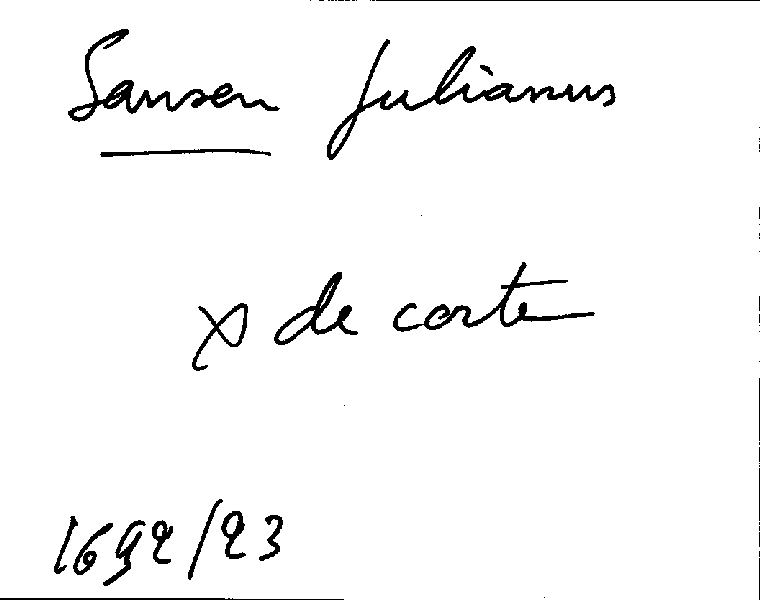 Sansen Julianus
x de corte
1692/23